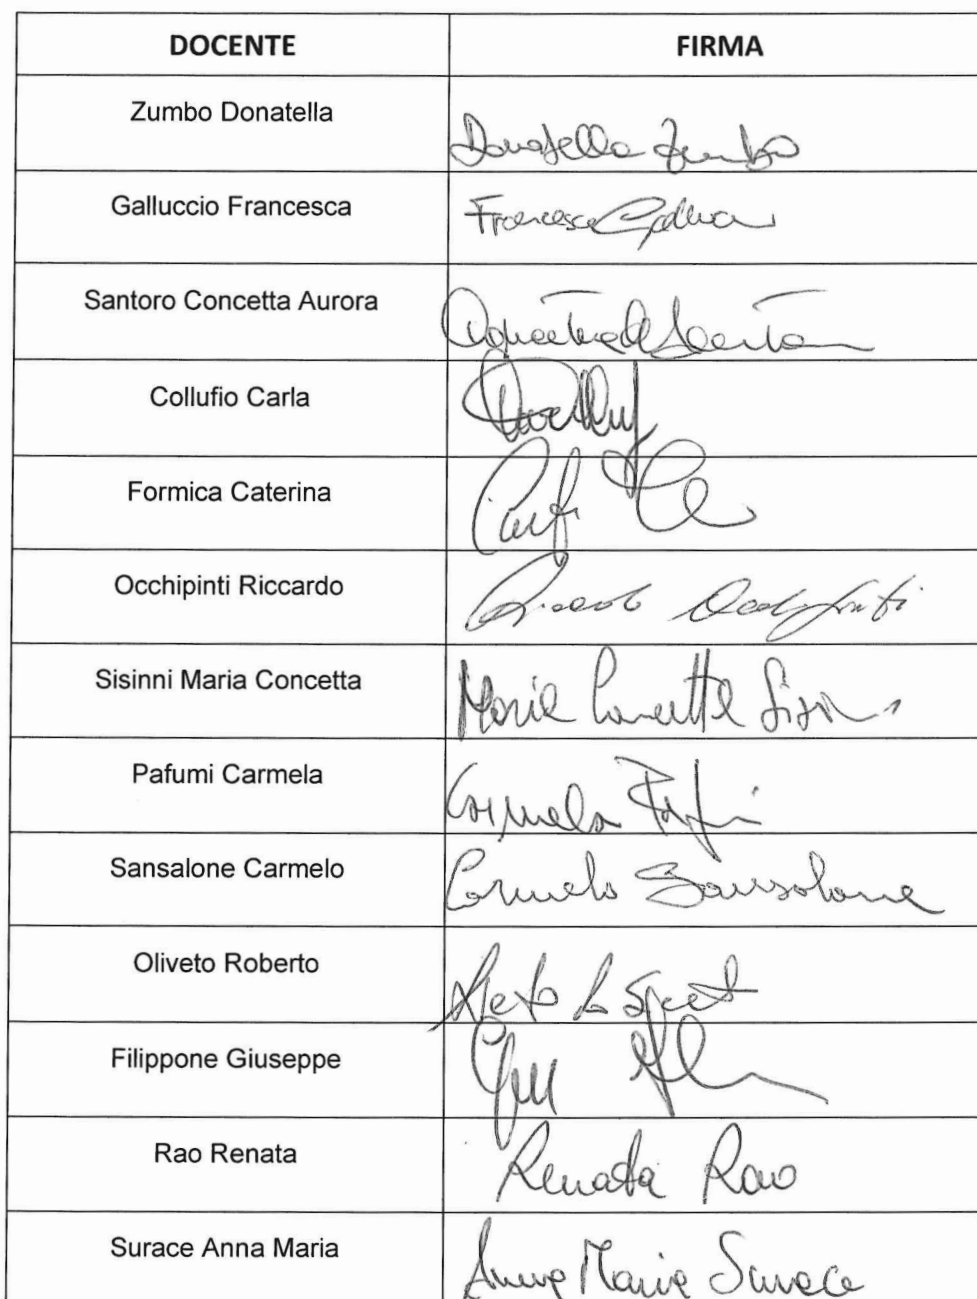 DOCENTE FIRMA
Zumbo Donatella Donatella Zumbo
Galluccio Francesca Francesca
Santoro Concetta Aurora
Collufio Carla
Formica Caterina
Occhipinti Riccardo Riccardo Occhipinti
Sisinni Maria Concetta Maria Concetta
Pafumi Carmela Carmela
Sansalone Carmelo Carmelo Sansalone
Oliveto Roberto
Filippone Giuseppe
Rao Renata Renata Rao
Surace Anna Maria Anna Maria Surace